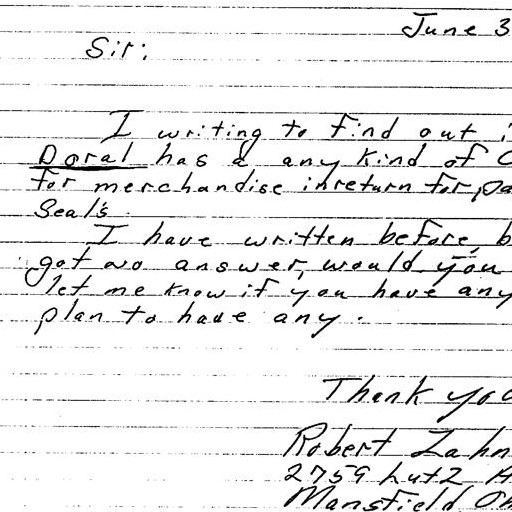 June 3
Sir:
I writing to find out i
Doral has a any kind of C
for merchandise inreturn for, pa
Seal's.
I have written before, b
got no answer, would you
let me know if you have any
plan to have any.
Thank you
Robert Zahn
2759 Lutz A
Mansfield Oh